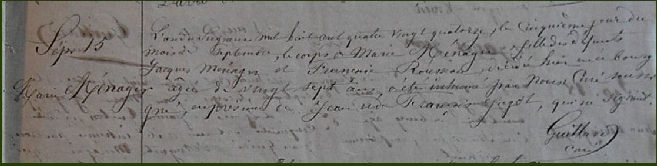 Sepre 15
Marie Ménager
L'an de grace mil huit cent quatre vingt quatorze, le cinquième jour du
mois de Septembre, le corps de Marie Ménager, fille de
Jacques Ménager et Françoise Rousseau, décédée hier en ce bourg
âgée de vingt sept ans, a été inhumé par nous Curé soussi-
gné, en présence de Jean et François Gigot, qui ne signent.
Guittard
curé